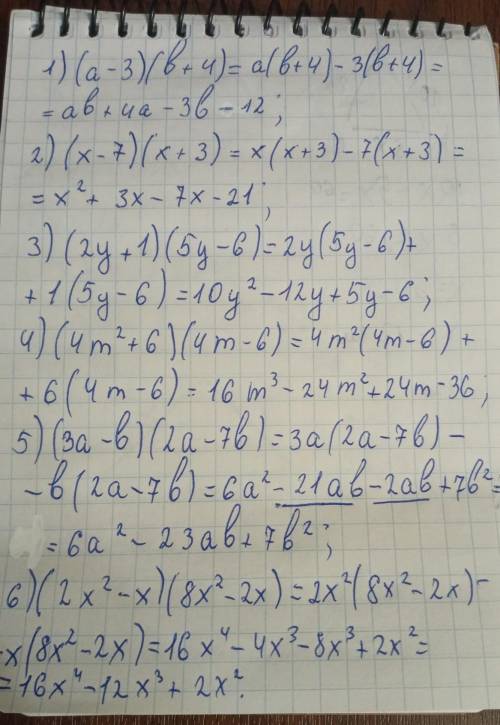 1) (a-3)(b+4)=a(b+4)-3(b+4)=
=ab+4a-3b-12;
2) (x-7)(x+3)=x(x+3)-7(x+3)=
=x²+3x-7x-21;
3) (2y+1)(5y-6)=2y(5y-6)+
+1(5y-6)=10y²-12y+5y-6;
4) (4m²+6)(4m-6)=4m²(4m-6)+
+6(4m-6)=16m³-24m²+24m-36;
5) (3a-b)(2a-7b)=3a(2a-7b)-
-b(2a-7b)=6a²-21ab-2ab+7b²=
=6a²-23ab+7b²;
6) (2x²-x)(8x²-2x)=2x²(8x²-2x)-
-x(8x²-2x)=16x⁴-4x³-8x³+2x²=
=16x⁴-12x³+2x².